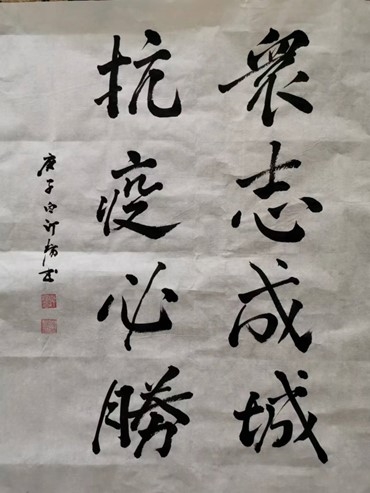 衆志成城
抗疫必勝
庚子